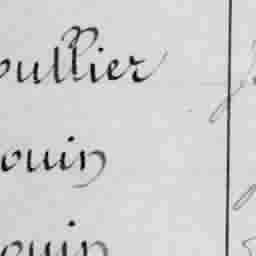 oullier
ouin
ouin